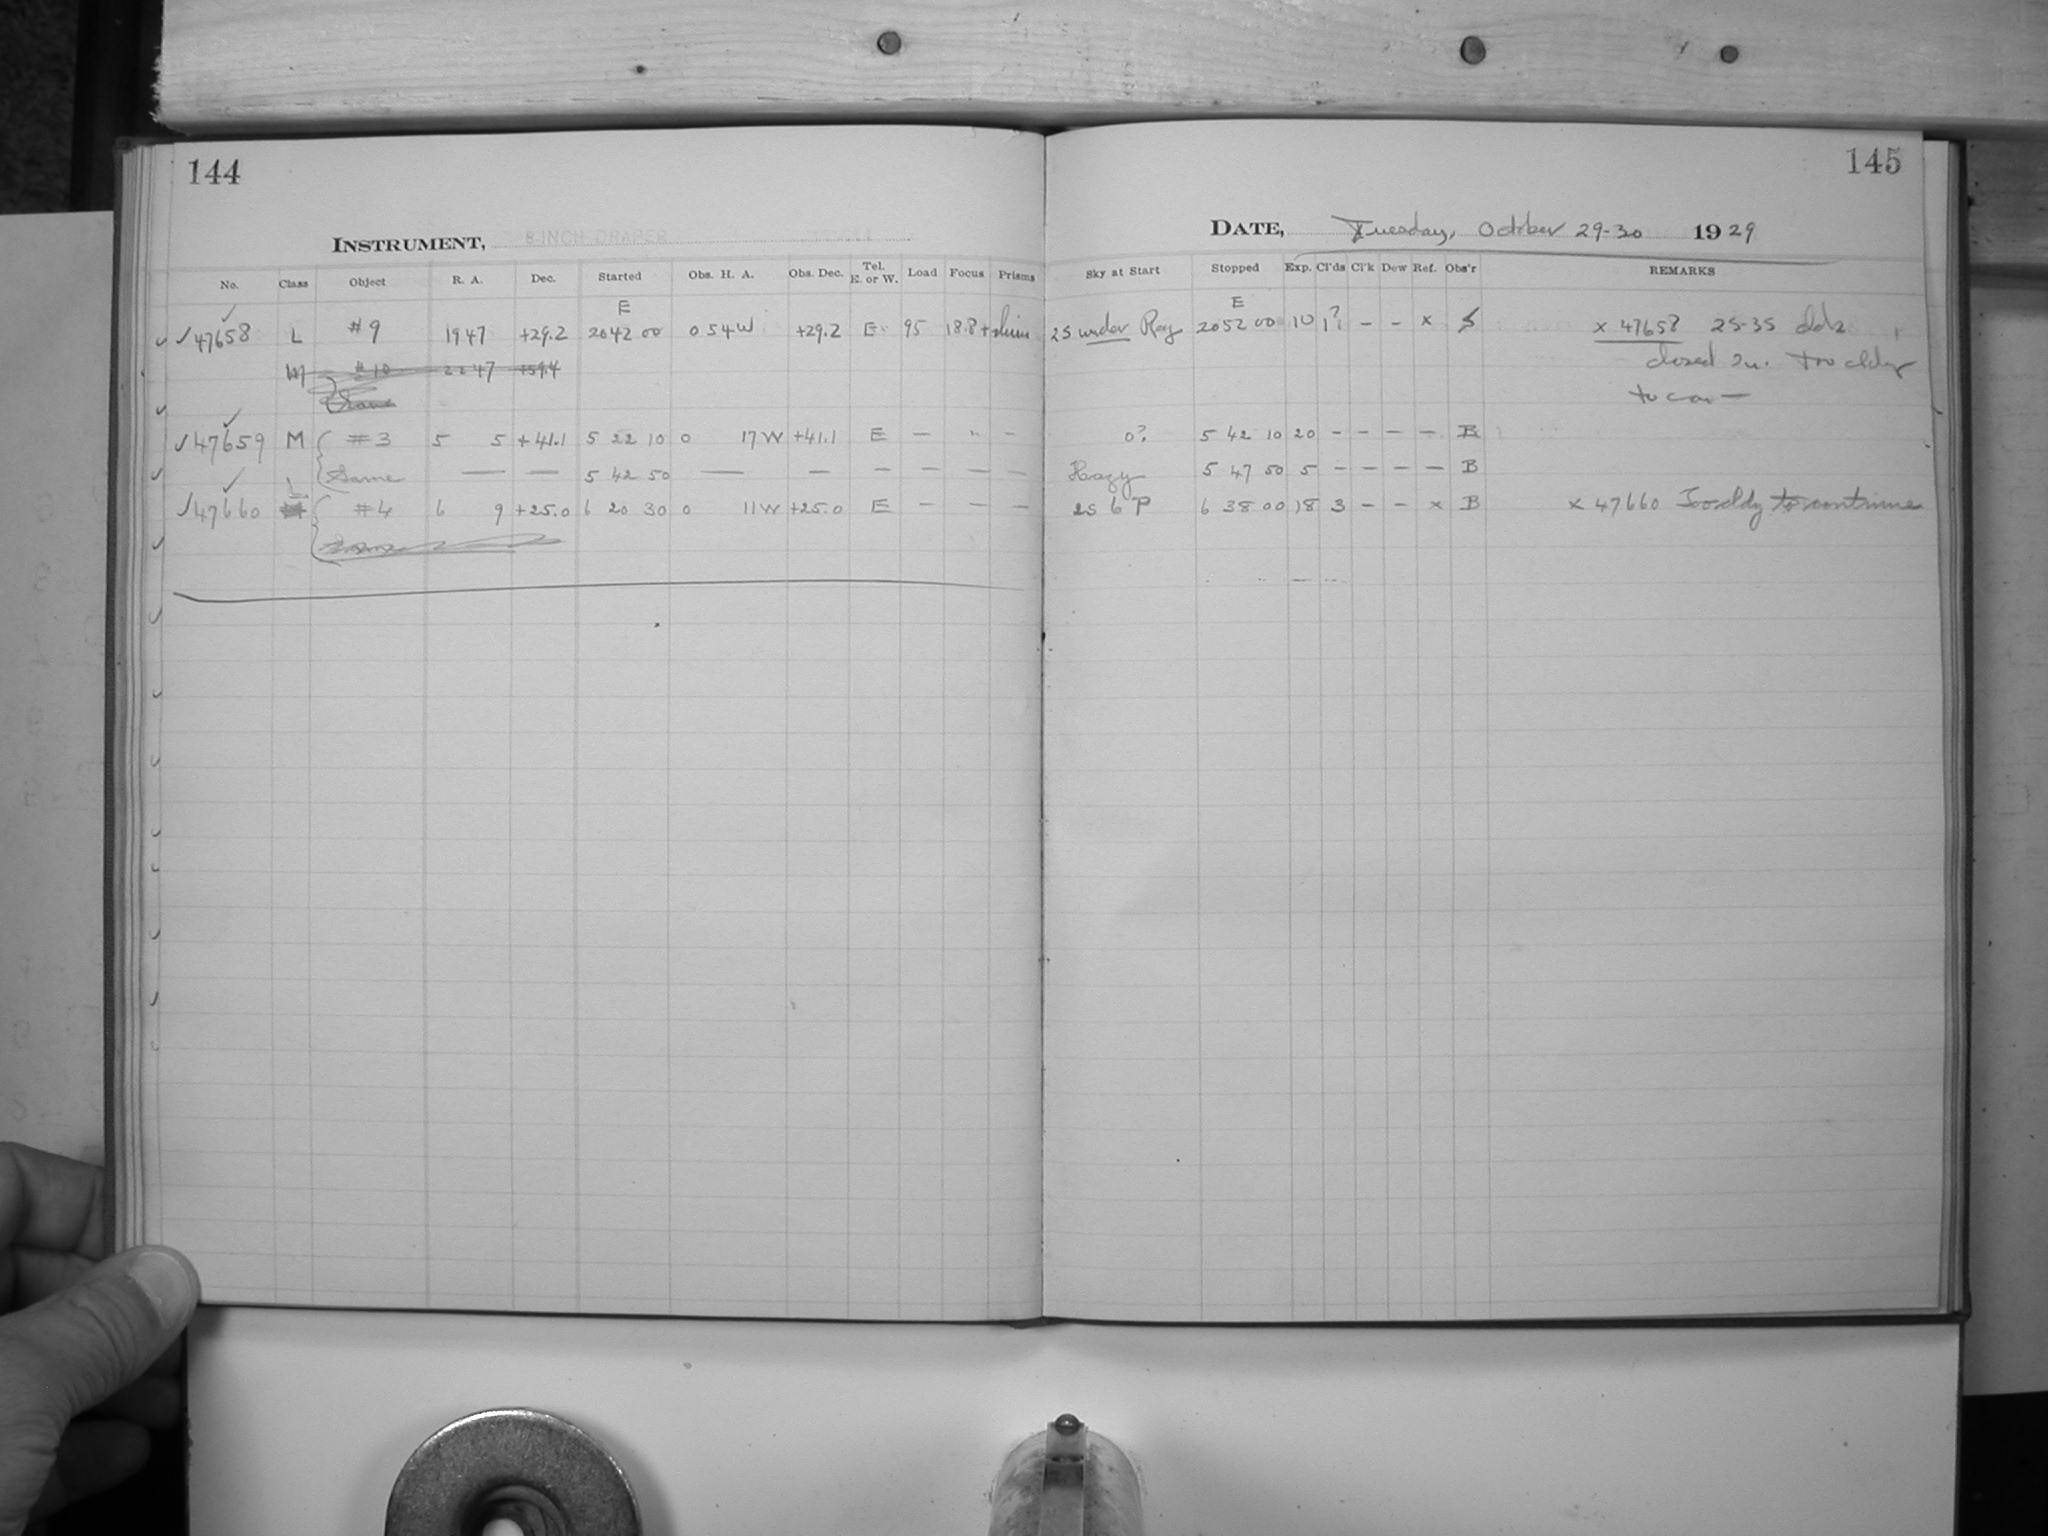 144
INSTRUMENT, 8-INCH DRAPER
No. Class Object R. A. Dec. Started Obs. H. A. Obs. Dec. Tel. E. or W. Load Focus Prisms
E
✓47658 L #9 19 47 +29.2 20 42 00 0 54 W +29.2 E 95 18.8 +
M #10 22 47 +59.4
Same
✓47659 M #3 5 5 +41.1 5 22 10 0 17 W +41.1 E — " –
L Same — — 5 42 50 — — — — — —
✓47660 #4 6 9 +25.0 6 20 30 0 11 W +25.0 E — — —
145
DATE, Tuesday, October 29-30 1929
Sky at Start Stopped Exp. Cl'ds Cl'k Dew Ref. Obs'r REMARKS
E
2S under 20 52 00 10 1? – – x S x 47658 2S-3S cldz
closed in. Too cldy
to con—
0? 5 42 10 20 – – – – B
Hazy 5 47 50 5 – – – – B
2S 6 P 6 38 00 18 3 – – x B x 47660 Too cldy to continue